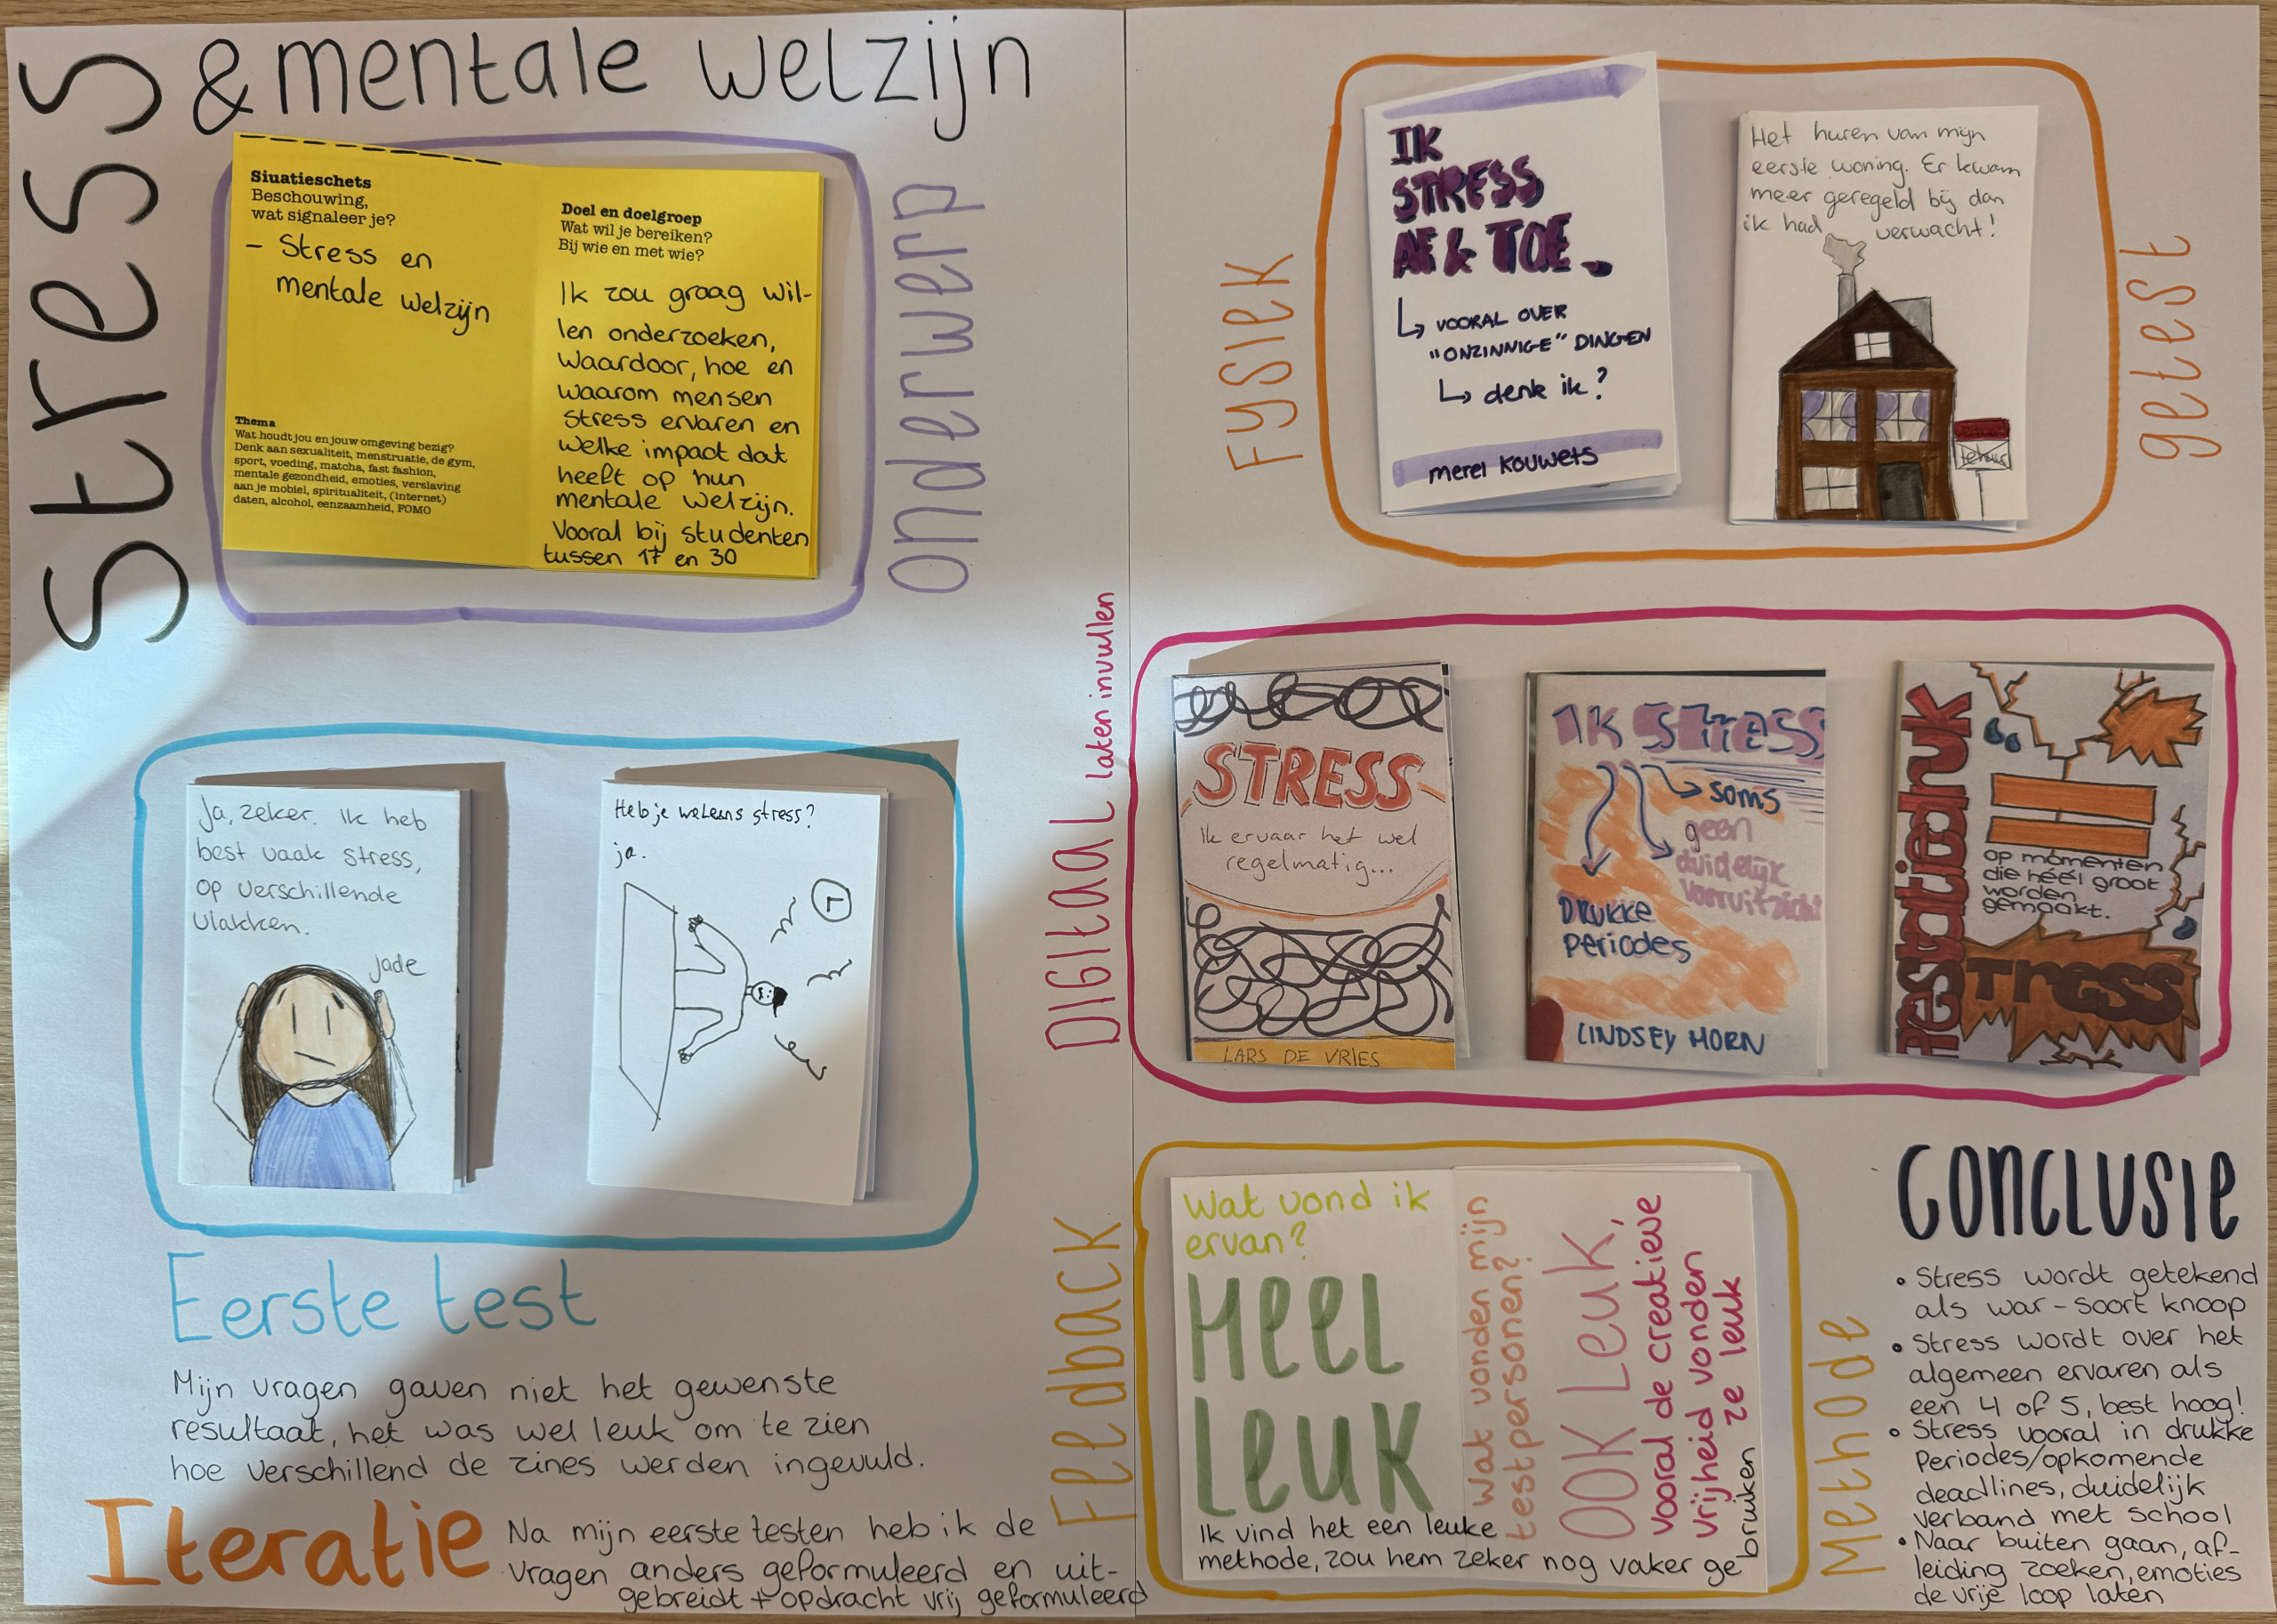 Stress
& mentale welzijn
onderwerp
Siuatieschets
Beschouwing,
wat signaleer je?
- Stress en
mentale welzijn
Thema
Wat houdt jou en jouw omgeving bezig?
Denk aan sexualiteit, menstruatie, de gym,
sport, voeding, matcha, fast fashion,
mentale gezondheid, emoties, verslaving
aan je mobiel, spiritualiteit, (internet)
daten, alcohol, eenzaamheid, FOMO
Doel en doelgroep
Wat wil je bereiken?
Bij wie en met wie?
Ik zou graag wil-
len onderzoeken,
waardoor, hoe en
waarom mensen
stress ervaren en
welke impact dat
heeft op hun
mentale welzijn.
Vooral bij studenten
tussen 17 en 30
Ja, zeker. Ik heb
best vaak stress,
op verschillende
vlakken.
Jade
Heb je weleens stress?
ja.
Eerste test
Mijn vragen gaven niet het gewenste
resultaat, het was wel leuk om te zien
hoe verschillend de zines werden ingevuld.
Iteratie
Na mijn eerste testen heb ik de
vragen anders geformuleerd en uit-
gebreidt + opdracht vrij geformuleerd
Fysiek
getest
IK
STRESS
AF & TOE.
VOORAL OVER
"ONZINNIGE" DINGEN
denk ik?
merel Kouwets
Het huren van mijn
eerste woning. Er kwam
meer geregeld bij dan
ik had verwacht!
te huur
Digitaal laten invullen
STRESS
Ik ervaar het wel
regelmatig...
LARS DE VRIES
IK Stress
soms
geen
duidelijk
vooruitzicht
DRUKKE
periodes
LINDSEY HORN
Prestatiedruk
op momenten
die héél groot
worden
gemaakt.
Stress
Feedback
Methode
Wat vond ik
ervan?
HEEL
LEUK
Wat vonden mijn
testpersonen?
OOK LEUK,
vooral de creatieve
vrijheid vonden
ze leuk
Ik vind het een leuke
methode, zou hem zeker nog vaker ge
bruiken
CONCLUSIE
• Stress wordt getekend
als war-soort knoop
• Stress wordt over het
algemeen ervaren als
een 4 of 5, best hoog!
• Stress vooral in drukke
Periodes/opkomende
deadlines, duidelijk
verband met school
• Naar buiten gaan, af-
leiding zoeken, emoties
de vrije loop laten